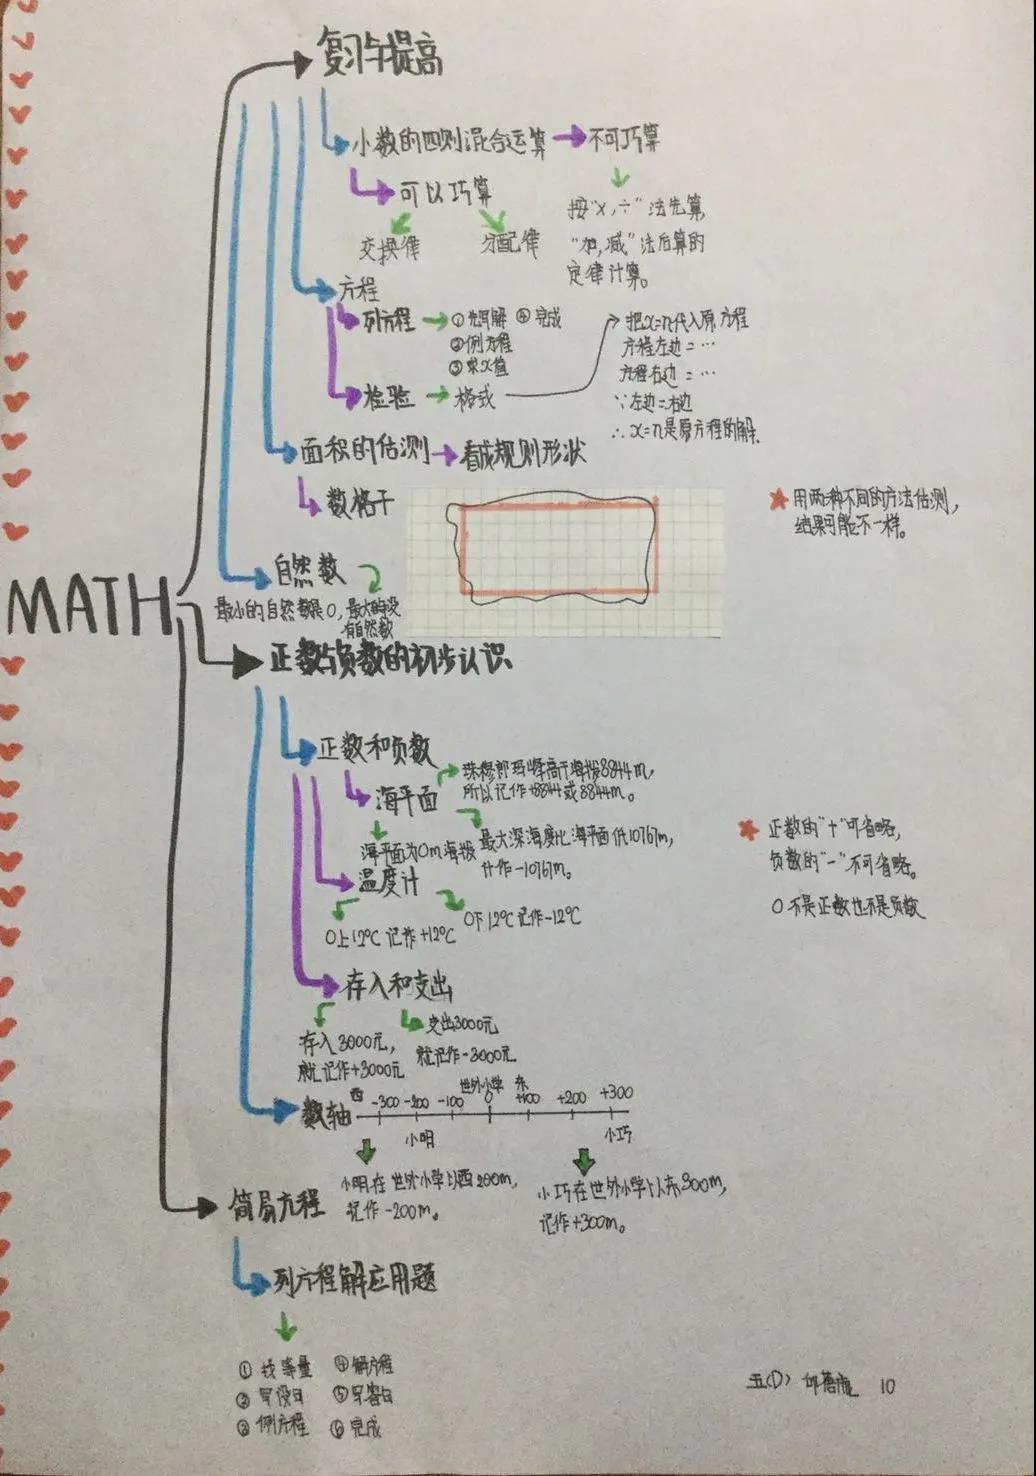 复习与提高
小数的四则混合运算 不可巧算
可以巧算
交换律 分配律
按"×,÷"法先算,
"加,减"法后算的
定律计算。
方程
列方程
①先写解 ④完成
②例方程
③求x值
检验 格式
把x=n代入原方程
方程左边=…
方程右边=…
∵左边=右边
∴x=n是原方程的解.
面积的估测 看成规则形状
数格子
用两种不同的方法估测,
结果可能不一样。
自然数
最小的自然数是0,最大的没
有自然数
MATH
正数与负数的初步认识
正数和负数
海平面
珠穆郎玛峰高于海拔8844m,
所以记作+8844或8844m。
海平面为0m海拔
最大深海度比海平面低10767m,
计作-10767m。
正数的"+"可省略,
负数的"-"不可省略。
0不是正数也不是负数
温度计
0上12℃记作+12℃
0下12℃记作-12℃
存入和支出
存入3000元,
就记作+3000元
支出3000元
就记作-3000元
数轴
西 -300 -200 -100 世外小学 0 东 +100 +200 +300
小明 小巧
小明在世外小学以西200m,
记作-200m。
小巧在世外小学以东300m,
记作+300m。
简易方程
列方程解应用题
①找等量 ④解方程
②写设日 ⑤写答曰
③例方程 ⑥完成
五(1) 10